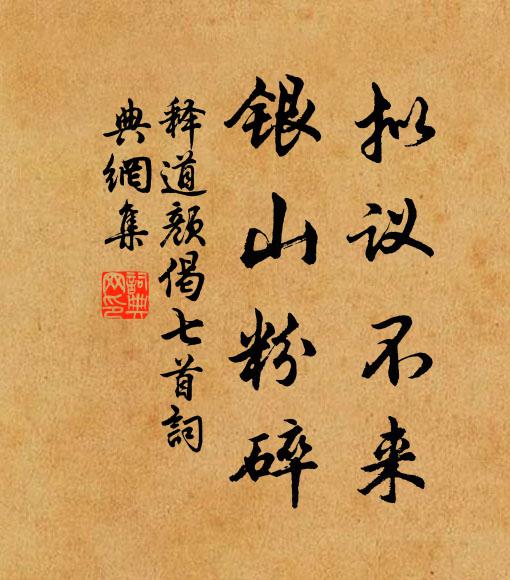 拟议不来
银山粉碎
释道颜偈七首詞
典網集
詞典網印